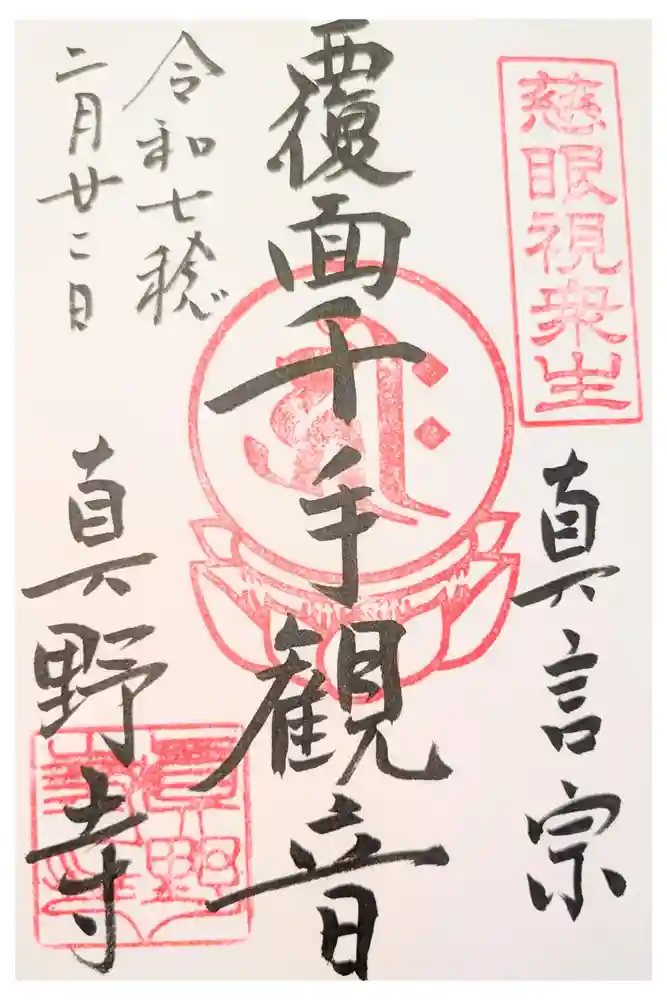 慈眼視衆生
真言宗
覆面千手観音
令和七稔
二月廿二日
真野寺